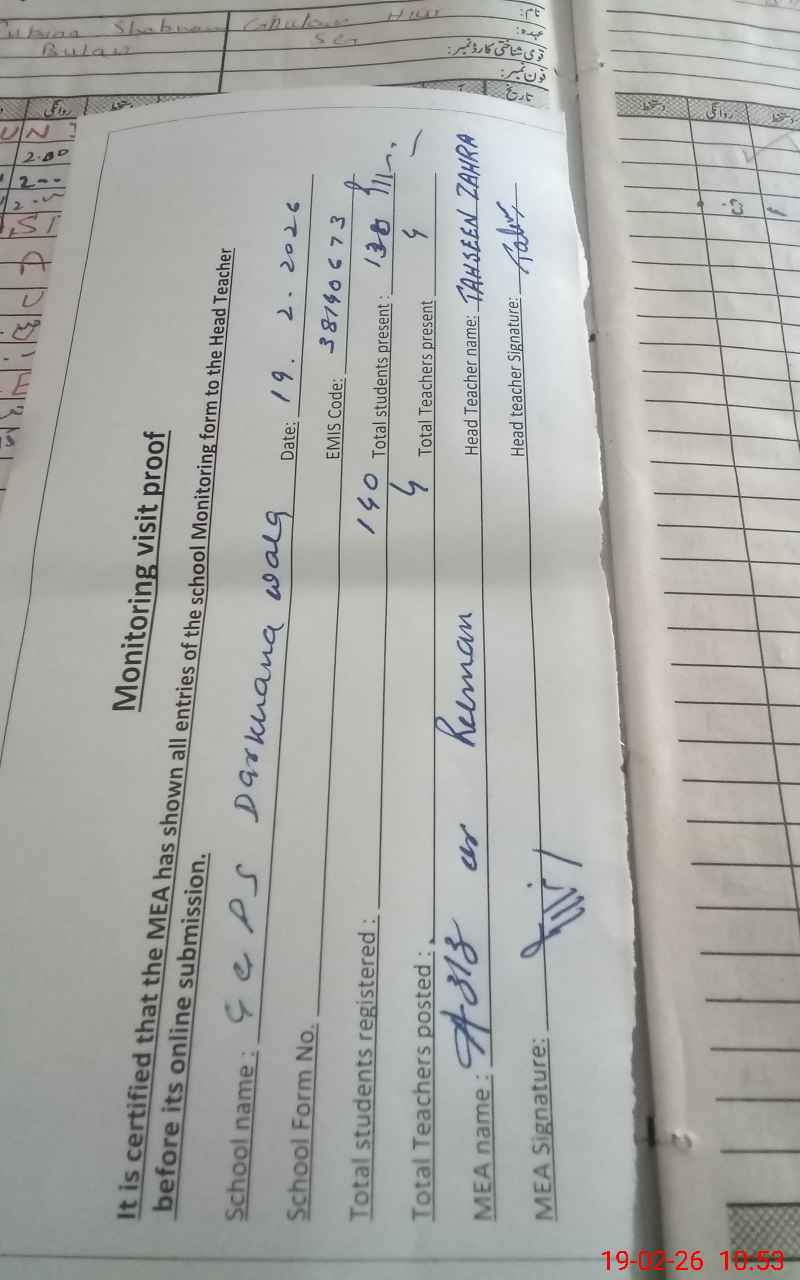 Monitoring visit proof
It is certified that the MEA has shown all entries of the school Monitoring form to the Head Teacher
before its online submission.
School name : GGPS Darkhana wala Date: 19. 2. 2026
School Form No. EMIS Code: 38140673
Total students registered : 140 Total students present : 138
Total Teachers posted : 4 Total Teachers present 4
MEA name : Aziz ur Rehman Head Teacher name: TAHSEEN ZAHRA
MEA Signature: Head teacher Signature:
نام:
عہدہ:
قومی شناختی کارڈ نمبر:
فون نمبر:
تاریخ
روانگی
دستخط
Shabnam
2.00
روانگی
دستخط
19-02-26 10:53